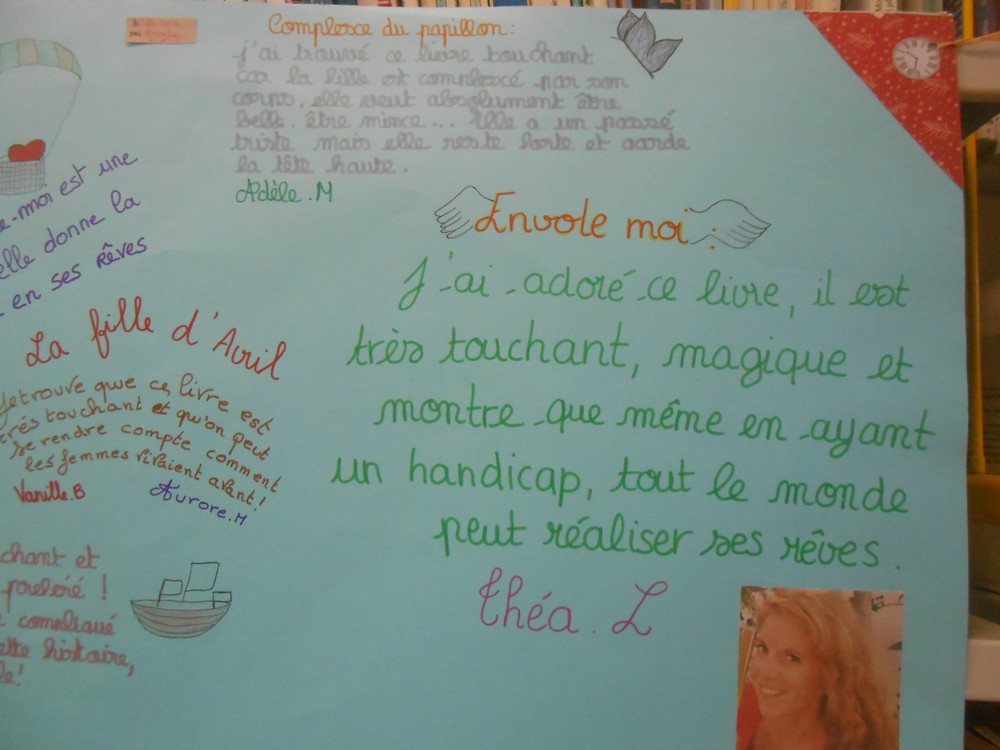 Complexe du papillon :
j'ai trouvé ce livre touchant
car la fille est complexcé par son
corps, elle veut absolument être
belle, être mince... Elle a un passé
triste mais elle reste forte et garde
la tête haute.
Adèle.M
e-moi est une
elle donne la
en ses rêves
Envole moi :
J'ai adoré ce livre, il est
très touchant, magique et
montre que même en ayant
un handicap, tout le monde
peut réaliser ses rêves.
théa. L
La fille d'Avril
Je trouve que ce livre est
très touchant et qu'on peut
se rendre compte comment
les femmes vivaient avant !
Vanille.B
Aurore.M
chant et
!
compliqué
ette histoire,
le!